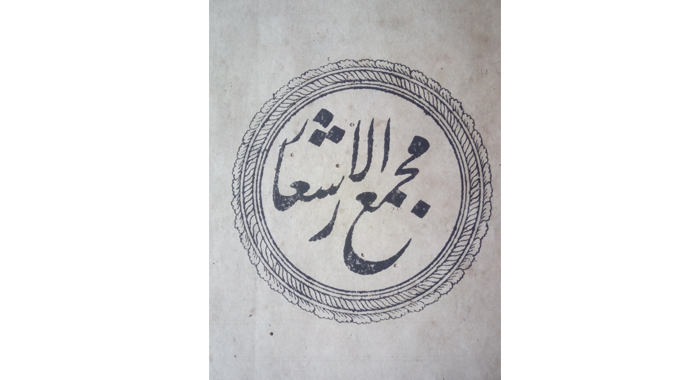 مجمع الاشعار